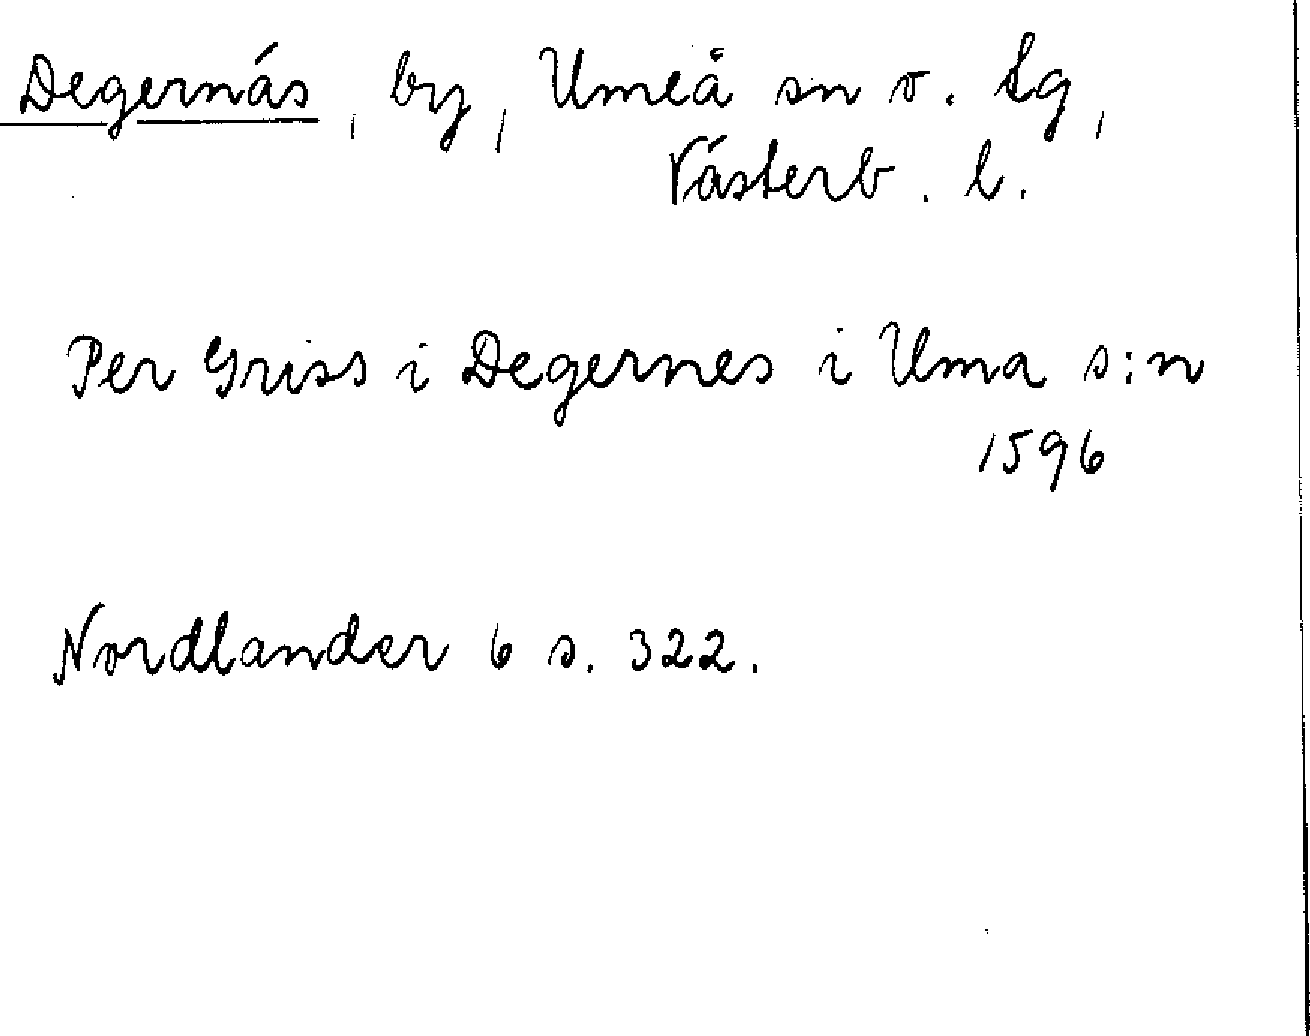 Degernäs, by, Umeå sn o. lg,
Västerb. l.
Per Griss i Degernes i Uma s:n
1596
Nordlander 6 s. 322.